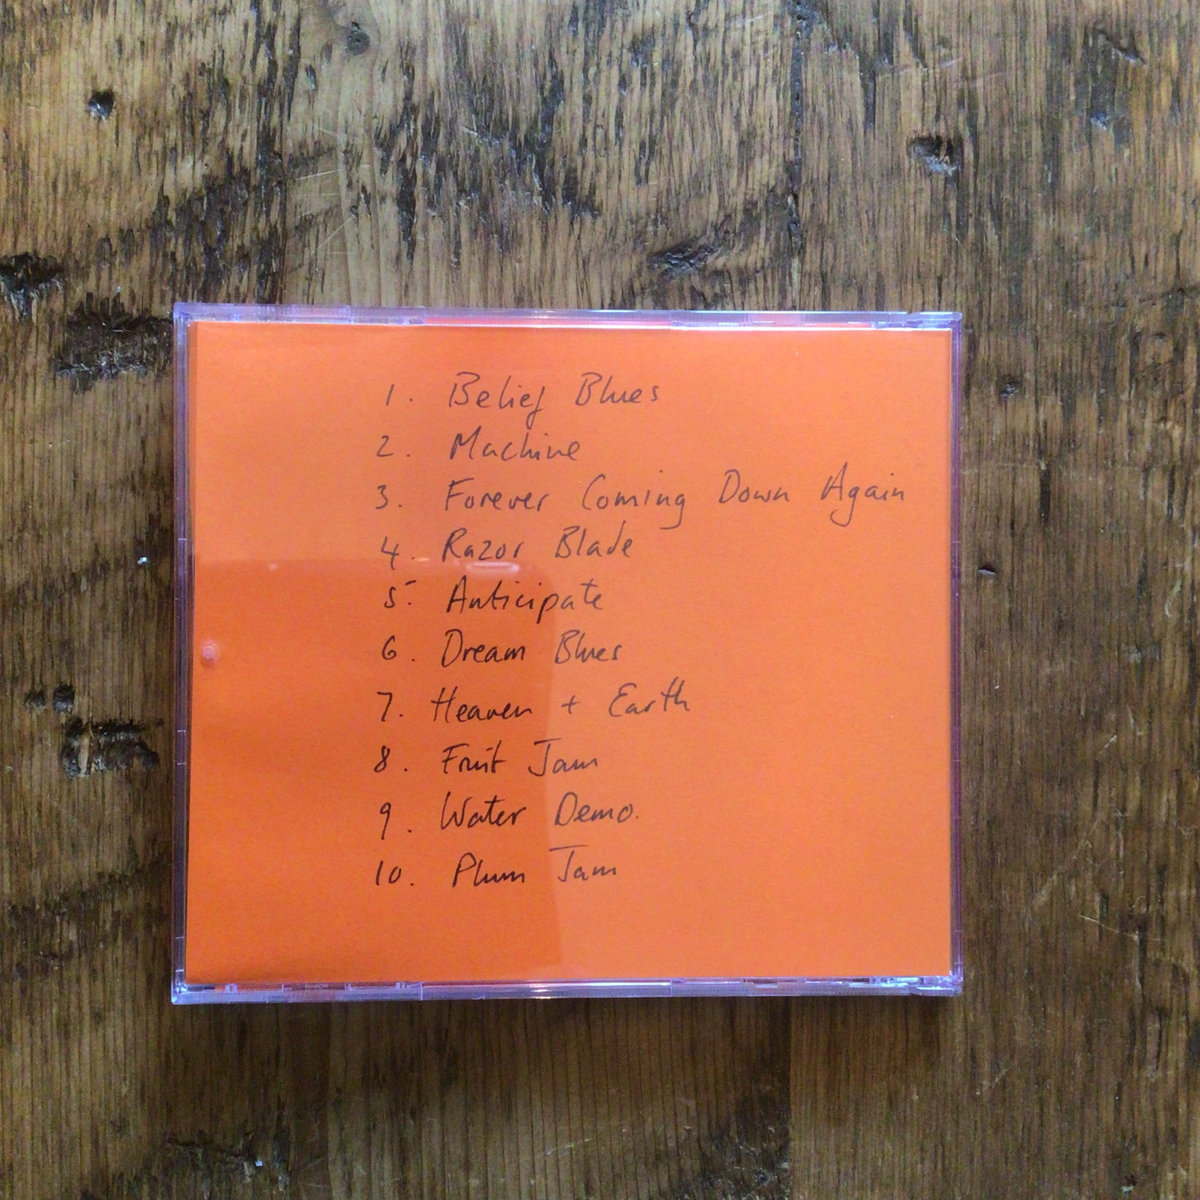 1. Belief Blues
2. Machine
3. Forever Coming Down Again
4. Razor Blade
5. Anticipate
6. Dream Blues
7. Heaven + Earth
8. Fruit Jam
9. Water Demo.
10. Plum Jam